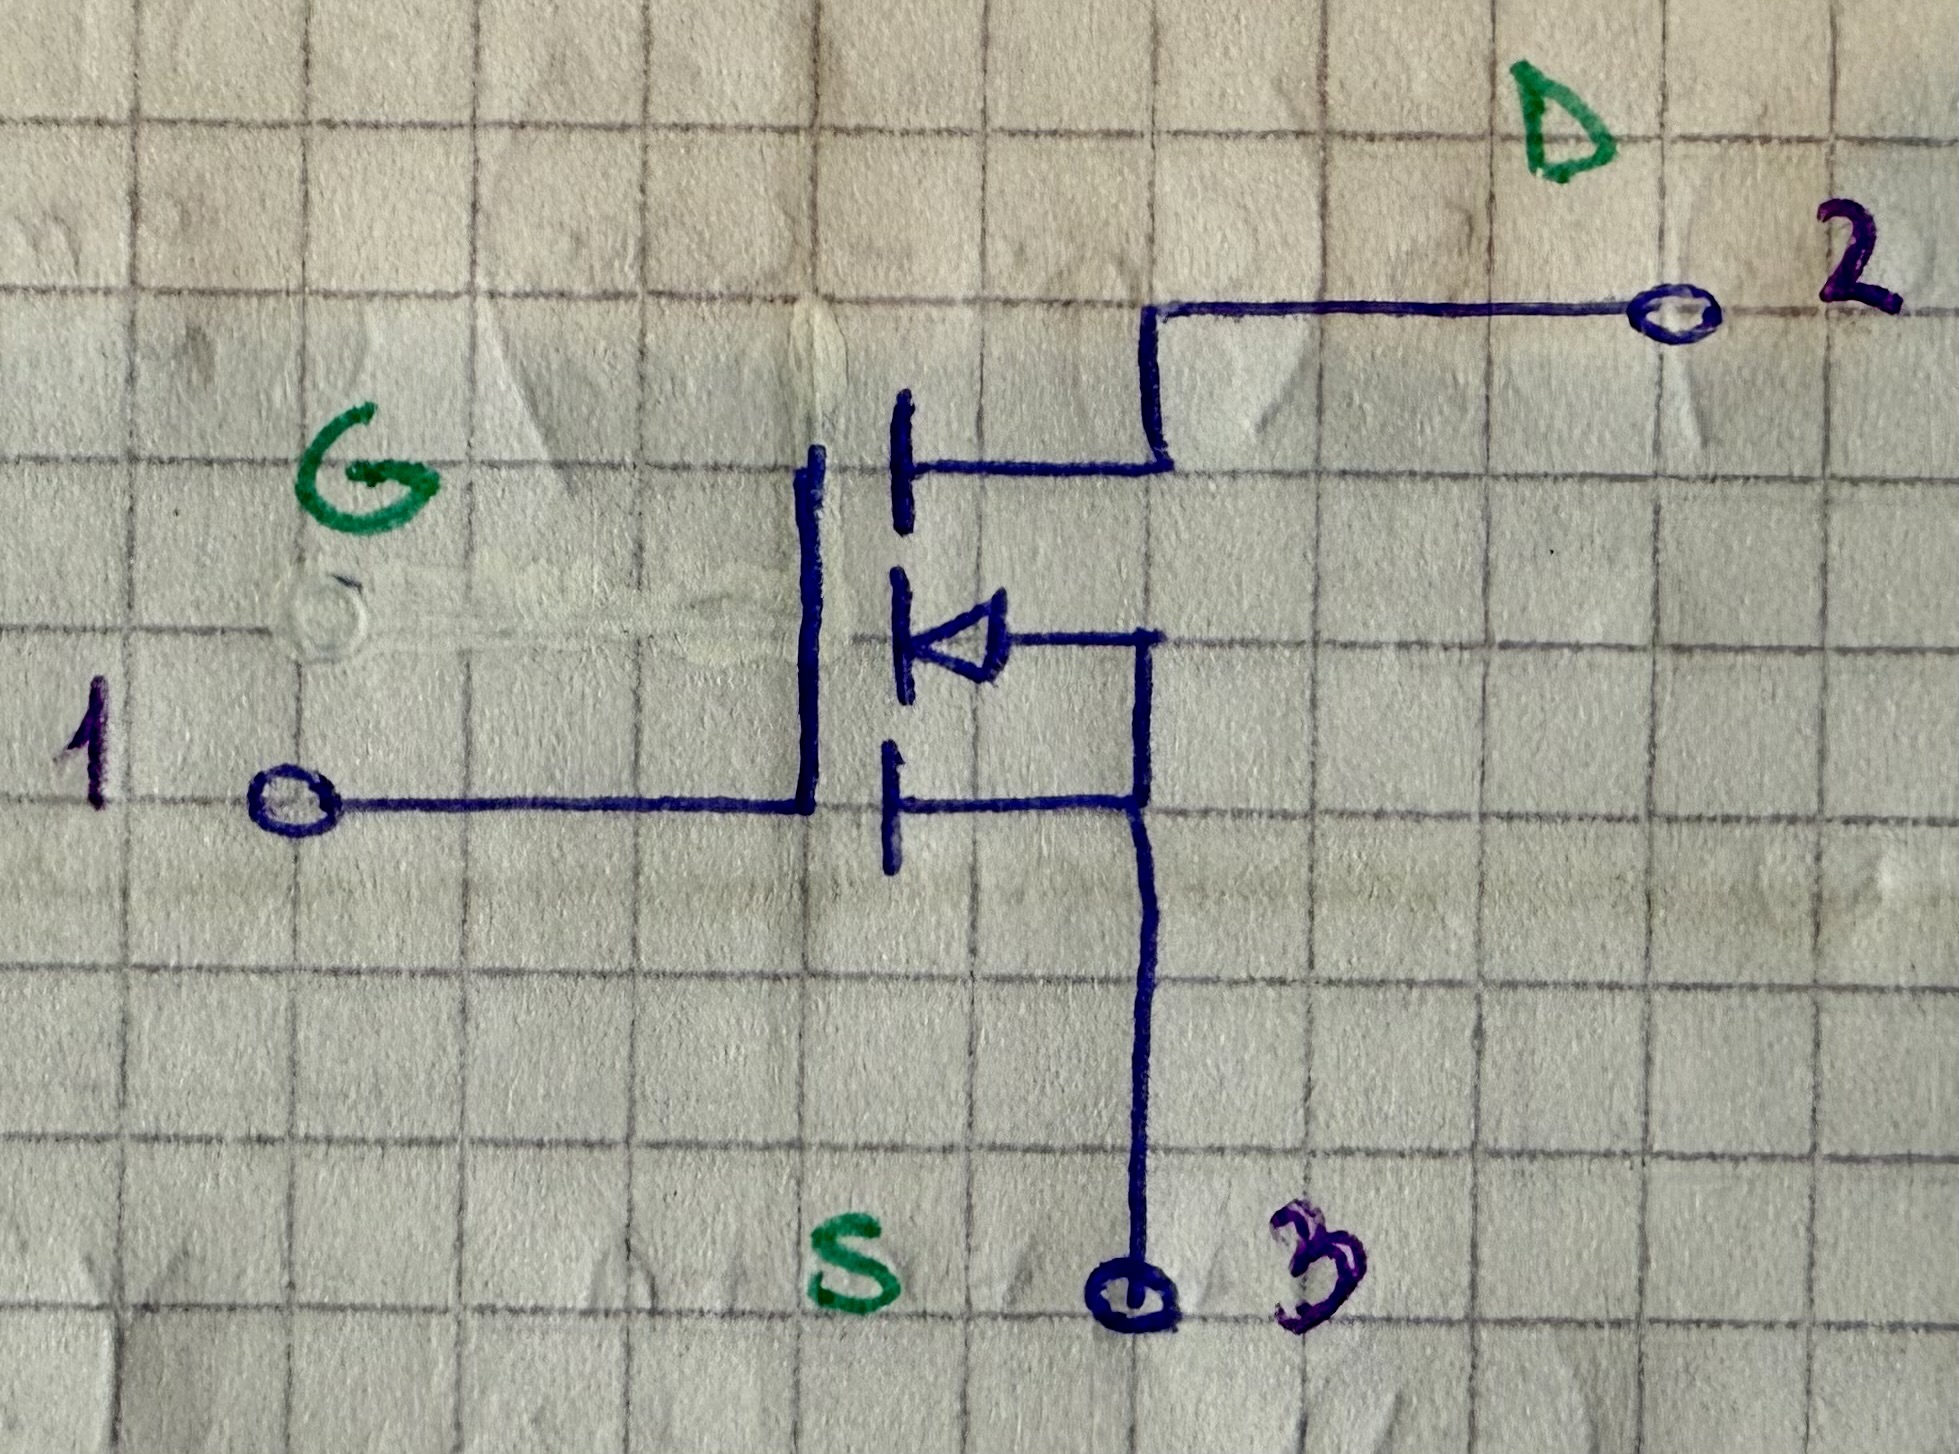 D
2
G
1
S 3